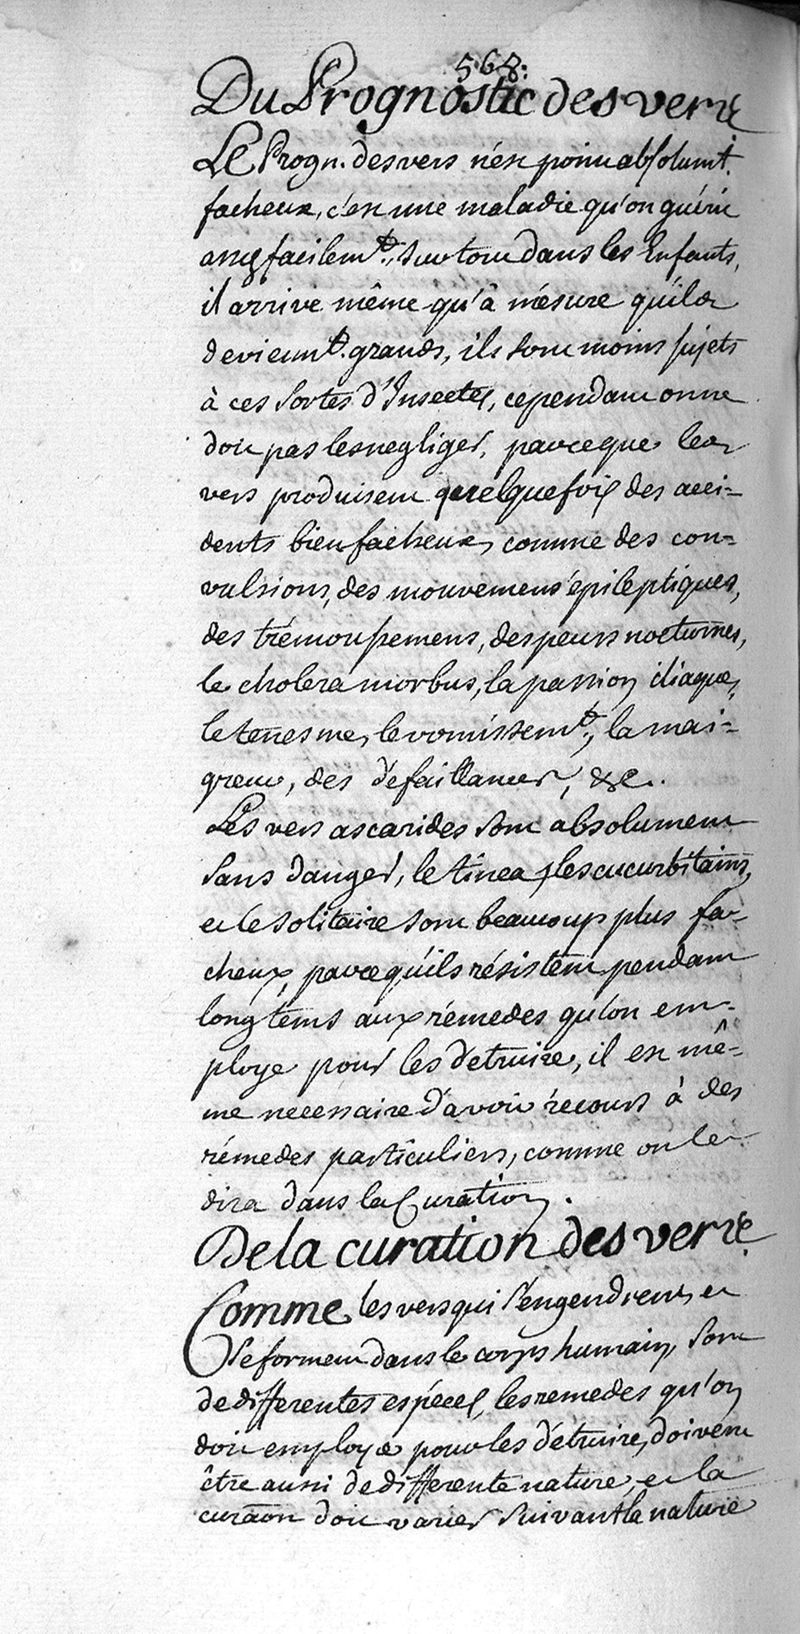 568.
Du Prognostic des vers
Le Progn. des vers n'est point absolumt.
facheux, c'est une maladie qu'on guérit
assez facilemt., surtout dans les Enfants,
il arrive même qu'à mésure qu'ils
devienntt. grands, ils sont moins sujets
à ces sortes d'Insectes, cependant on ne
doit pas les negliger, parce que les
vers produisent quelquefois des acci-
dents bien facheux, comme des con-
vulsions, des mouvemens épileptiques,
des trémoussemens, des peurs nocturnes,
le cholera morbus, la passion iliaque,
le tenesme, le vomissemt., la mai-
greur, des défaillances, &c.
Les vers ascarides sont absolument
sans danger, le tinea, les cucurbitains,
et le solitaire sont beaucoup plus fa-
cheux, parce qu'ils résistent pendant
longtems aux rémedes qu'on em-
ploye pour les détruire, il est mê-
me necessaire d'avoir récours à des
rémedes particuliers, comme on le
dira dans la Curation.
De la curation des vers.
Comme les vers qui s'engendrent et
se forment dans le corps humain, sont
de differentes espéces, les remedes qu'on
doit employer pour les détruire, doivent
être aussi de differente nature, et la
curaon doit varier suivant la nature